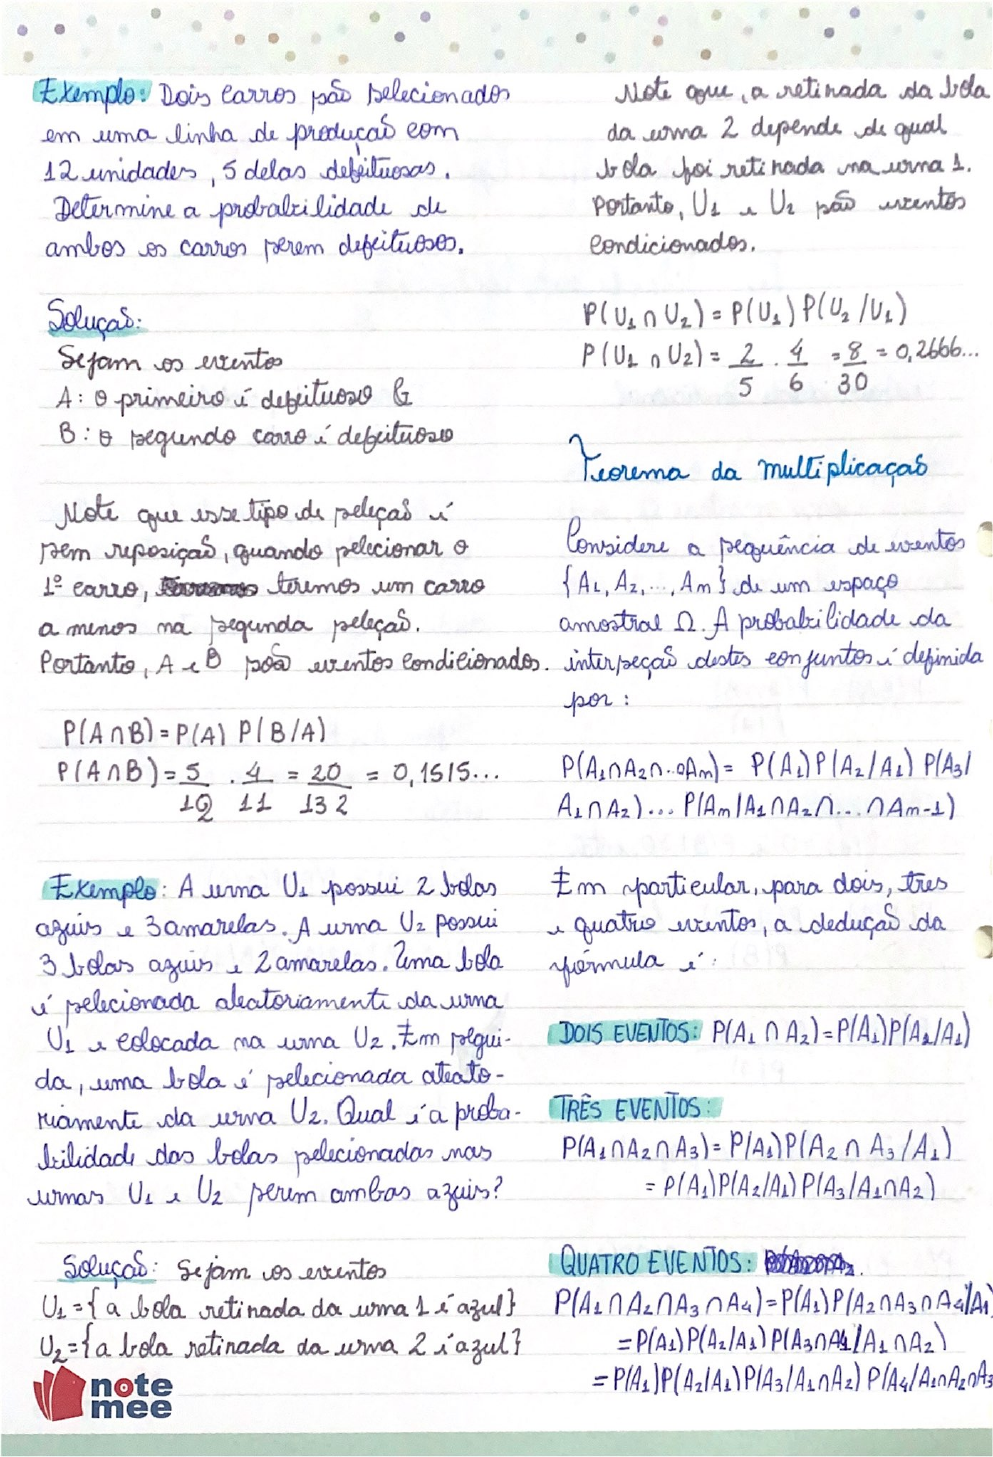 Exemplo: Dois carros são selecionados
em uma linha de produção com
12 unidades, 5 delas defeituosas.
Determine a probabilidade de
ambos os carros serem defeituosos.
Solução:
Sejam os eventos
A: o primeiro é defeituoso e
B: o segundo carro é defeituoso
Note que esse tipo de seleção é
sem reposição, quando selecionar o
1º carro, teremos um carro
a menos na segunda seleção.
Portanto, A e B são eventos condicionados.
P(A∩B)=P(A) P(B/A)
P(A∩B)= 5/12 . 4/11 = 20/132 = 0,1515...
Exemplo: A urna U1 possui 2 bolas
azuis e 3 amarelas. A urna U2 possui
3 bolas azuis e 2 amarelas. Uma bola
é selecionada aleatoriamente da urna
U1 e colocada na urna U2. Em segui-
da, uma bola é selecionada aleato-
riamente da urna U2. Qual é a proba-
bilidade das bolas selecionadas nas
urnas U1 e U2 serem ambas azuis?
Solução: Sejam os eventos
U1={a bola retirada da urna 1 é azul}
U2={a bola retirada da urna 2 é azul}
Note que, a retirada da bola
da urna 2 depende de qual
bola foi retirada na urna 1.
Portanto, U1 e U2 são eventos
condicionados.
P(U1∩U2)=P(U1)P(U2/U1)
P(U1∩U2)= 2/5 . 4/6 = 8/30 = 0,2666...
Teorema da multiplicação
Considere a sequência de eventos
{A1, A2, ..., Am} de um espaço
amostral Ω. A probabilidade da
interseção destes conjuntos é definida
por:
P(A1∩A2∩...∩Am)= P(A1)P(A2/A1) P(A3/
A1∩A2)... P(Am/A1∩A2∩...∩Am-1)
Em particular, para dois, tres
e quatro eventos, a dedução da
fórmula é:
DOIS EVENTOS: P(A1∩A2)=P(A1)P(A2/A1)
TRÊS EVENTOS:
P(A1∩A2∩A3)= P(A1)P(A2∩A3/A1)
= P(A1)P(A2/A1)P(A3/A1∩A2)
QUATRO EVENTOS:
P(A1∩A2∩A3∩A4)=P(A1)P(A2∩A3∩A4/A1)
=P(A1)P(A2/A1)P(A3∩A4/A1∩A2)
=P(A1)P(A2/A1)P(A3/A1∩A2) P(A4/A1∩A2∩A3
note
mee